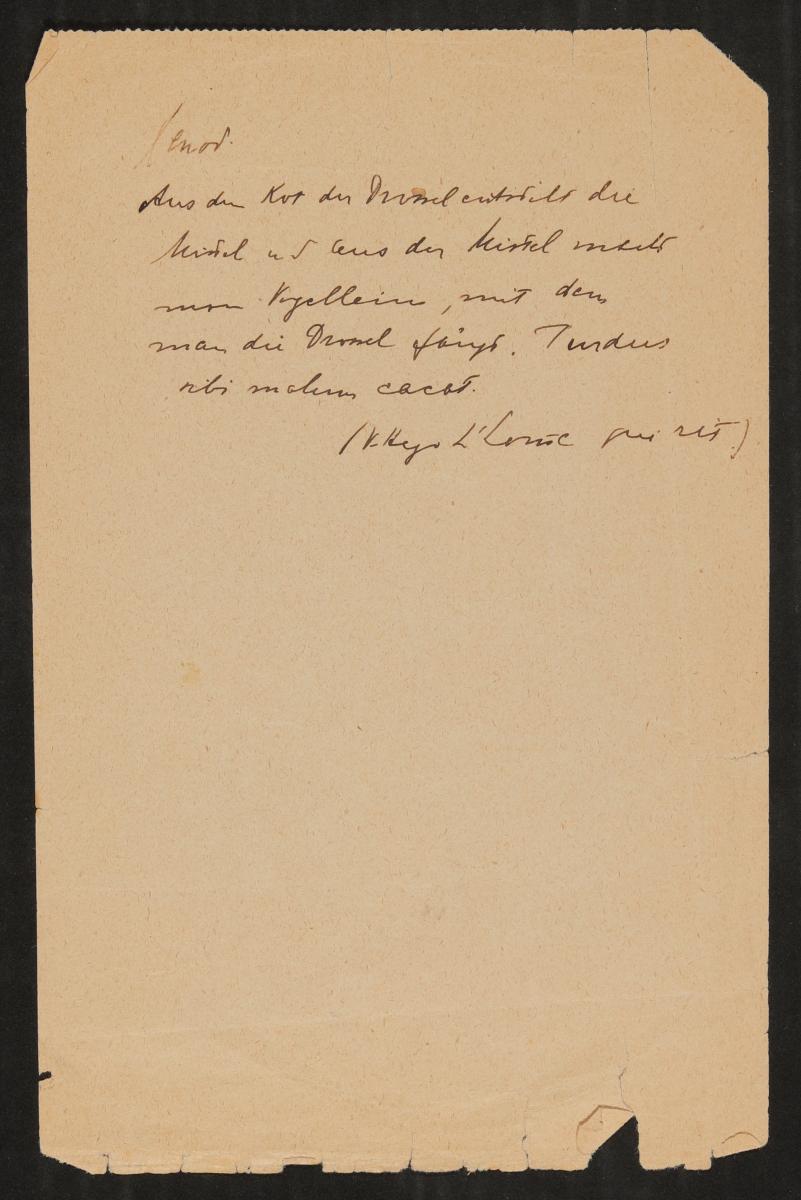 Aus dem Kot der Drossel entsteht die
Mistel und aus der Mistel macht
man Vogelleim, mit dem
man die Drossel fängt. Turdus
sibi malum cacat.
(V. Hugo L'homme qui rit.)